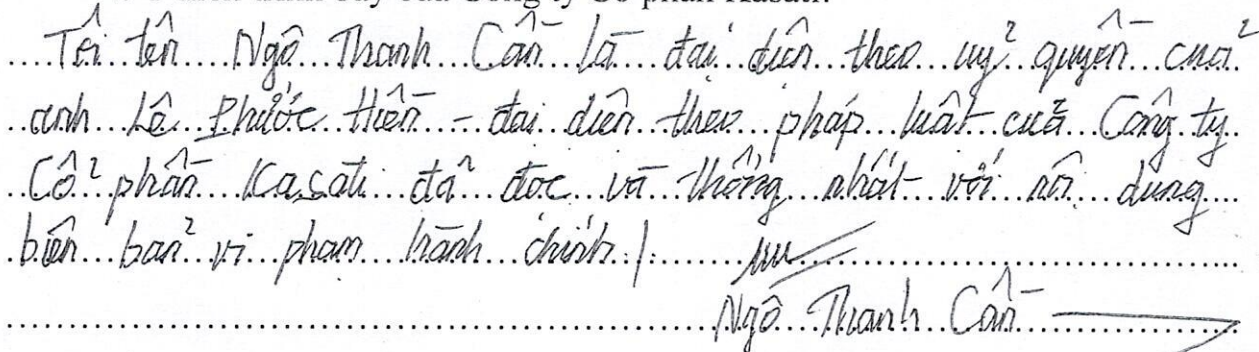 của Công ty Cổ phần Kasati.
Tôi tên Ngô Thanh Cần là đại diện theo uỷ quyền của
anh Lê Phước Hiền - đại diện theo pháp luật của Công ty
Cổ phần Kasati đã đọc và thống nhất với nội dung
biên bản vi phạm hành chính ./.
Ngô Thanh Cần